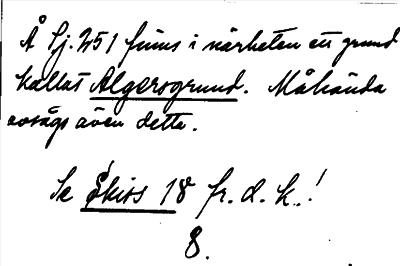 Å Sj. 251 finns i närheten en grund
kallat Algersgrund. Måhända
avsågs även detta.
Se skiss 18 fr. d. k.!
8.